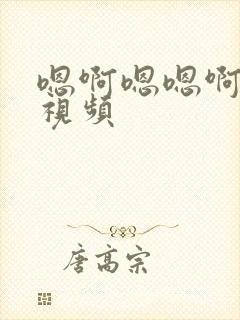 嗯啊嗯嗯啊
視頻
唐高宗